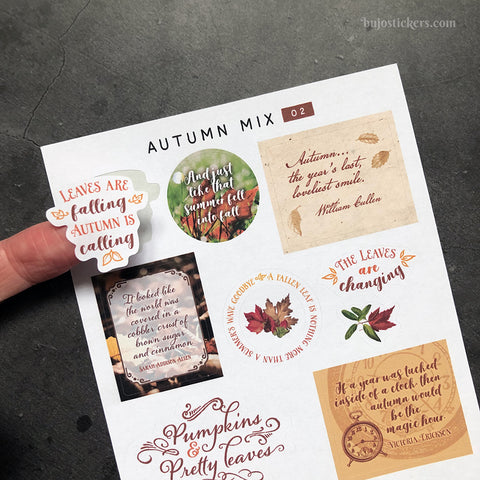 bujostickers.com
AUTUMN MIX 02
LEAVES ARE
falling
AUTUMN IS
calling
And just
like that
summer fell
into fall
Autumn...
the year's last,
loveliest smile.
William Cullen
It looked like
the world was
covered in a
cobbler crust of
brown sugar
and cinnamon.
SARAH ADDISON ALLEN
A FALLEN LEAF IS NOTHING MORE THAN A SUMMER'S WAVE GOODBYE
THE LEAVES
are
changing
If a year was tucked
inside of a clock, then
autumn would
be the
magic hour.
VICTORIA ERICKSON
Pumpkins
&
Pretty leaves